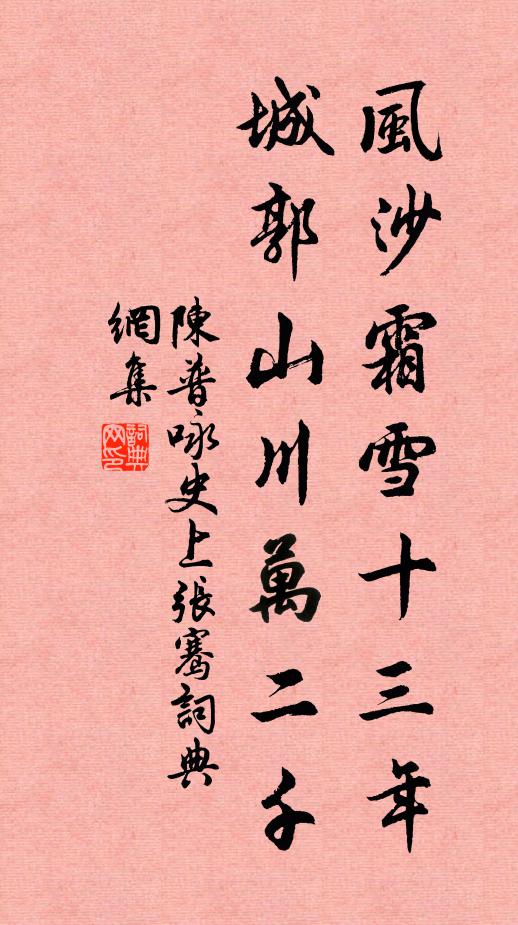 風沙霜雪十三年
城郭山川萬二千
陳普咏史上張騫詞典
網集
詞典网印